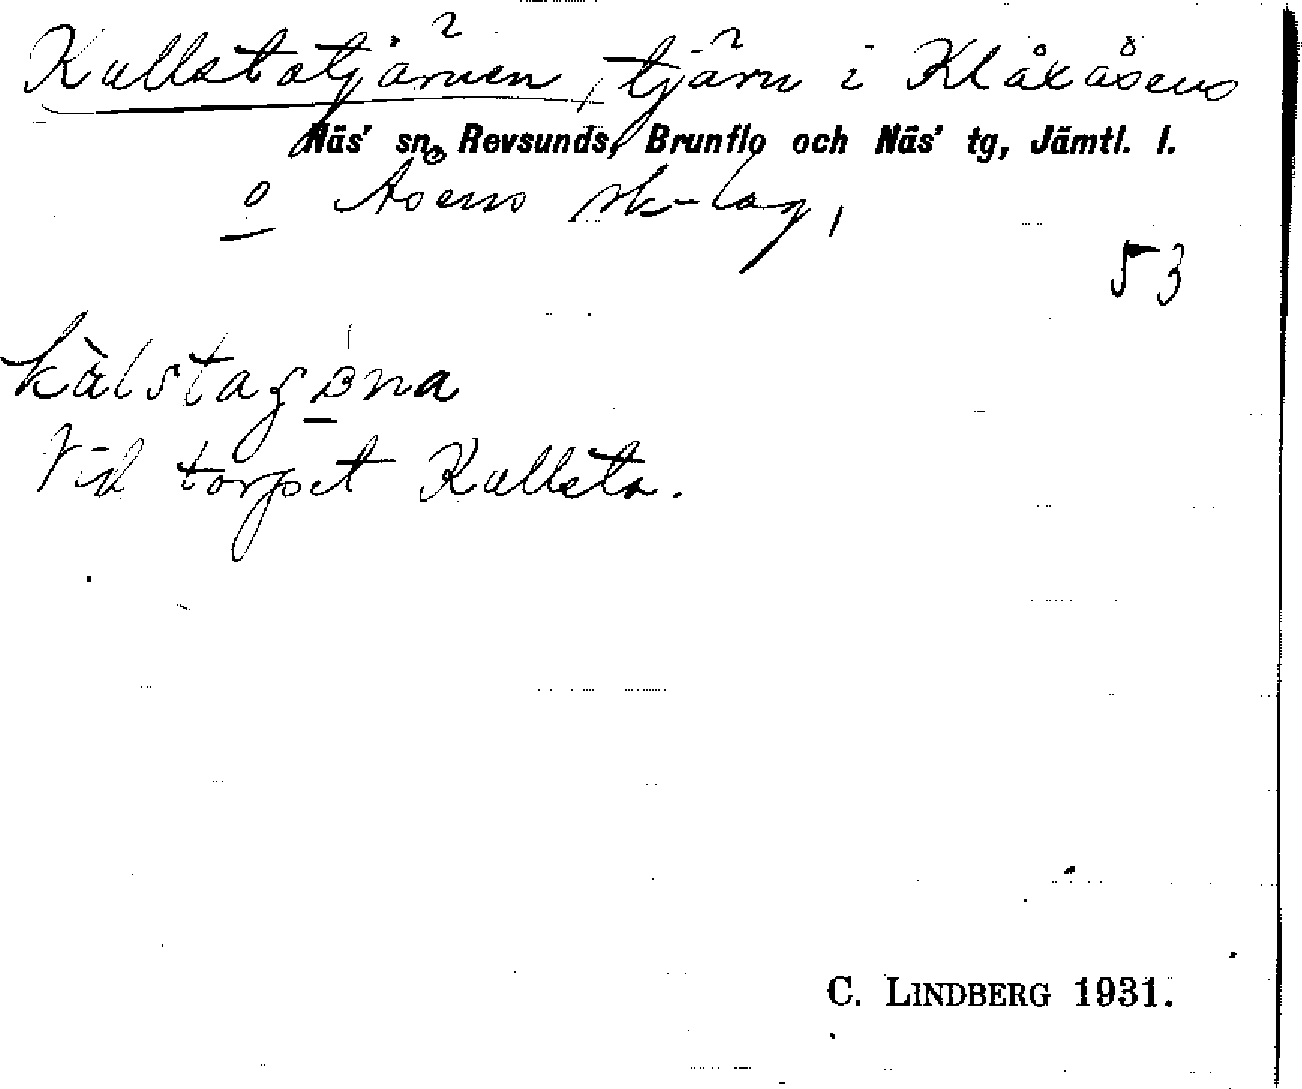 Kallstatjärnen, tjärn i Klåxåsens
Näs' sn, Revsunds, Brunflo och Näs' tg, Jämtl. l.
o Åsens sk-lag,
53
kàlstaʒɐ̱na
Vid torpet Kallsta.
C. LINDBERG 1931.